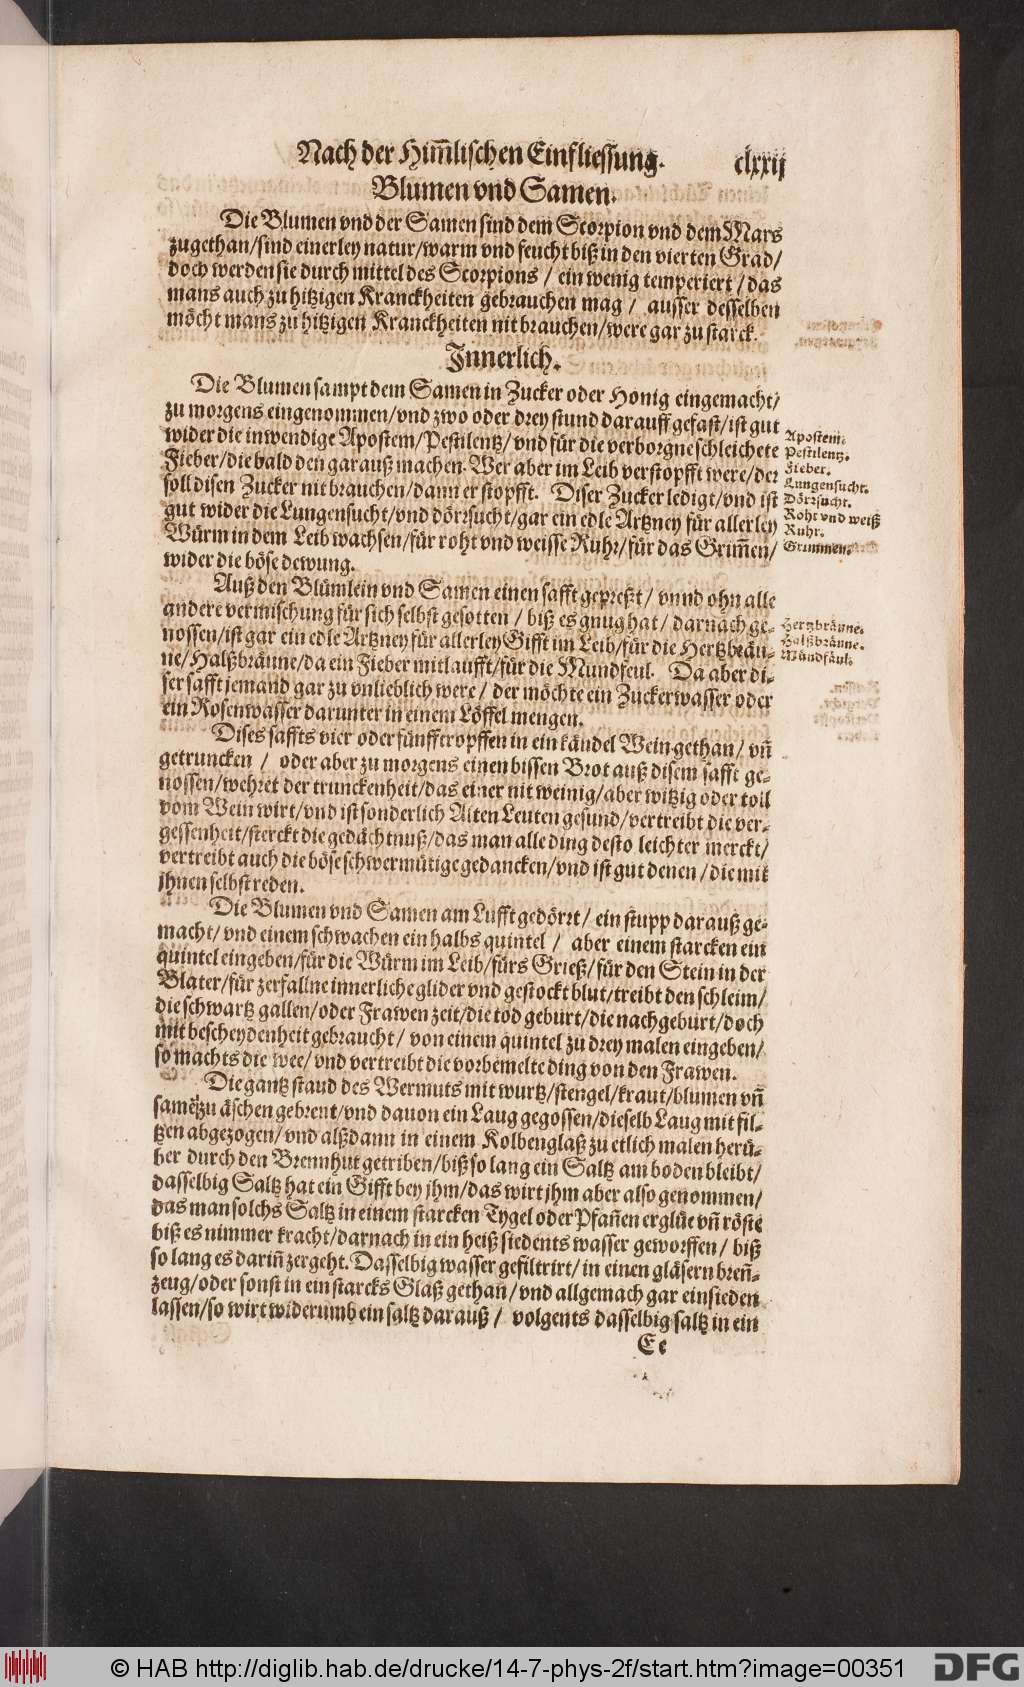 Nach der Him̃lischen Einfliessung. clxxij
Blumen vnd Samen.
Die Blumen vnd der Samen sind dem Scorpion vnd dem Mars
zugethan/sind einerley natur/warm vnd feucht biß in den vierten Grad/
doch werden sie durch mittel des Scorpions / ein wenig temperiert / das
mans auch zu hitzigen Kranckheiten gebrauchen mag / ausser desselben
möcht mans zu hitzigen Kranckheiten nit brauchen/were gar zu starck.
Innerlich.
Die Blumen sampt dem Samen in Zucker oder Honig eingemacht/
zu morgens eingenommen/vnd zwo oder drey stund darauff gefast/ist gut
wider die inwendige Apostem/Pestilentz/vnd für die verborgne schleichete
Fieber/die bald den garauß machen. Wer aber im Leib verstopfft were/der
soll disen Zucker nit brauchen/dann er stopfft. Diser Zucker ledigt/vnd ist
gut wider die Lungensucht/vnd dörrsucht/gar ein edle Artzney für allerley
Würm in dem Leib wachsen/für roht vnd weisse Ruhr/für das Grim̃en/
wider die böse dewung.
Apostem.
Pestilentz.
Fieber.
Lungensucht.
Dörrsucht.
Roht vnd weiß
Ruhr.
Grimmen.
Auß den Blümlein vnd Samen einen safft gepreßt / vnnd ohn alle
andere vermischung für sich selbst gesotten / biß es gnug hat / darnach ge-
nossen/ist gar ein edle Artzney für allerley Gifft im Leib/für die Hertzbräu-
ne/Halßbränne/da ein Fieber mitlaufft/für die Mundfeul. Da aber di-
ser safft jemand gar zu vnlieblich were / der möchte ein Zuckerwasser oder
ein Rosenwasser darunter in einem Löffel mengen.
Hertzbränne.
Halßbränne.
Mundfäul.
Dises saffts vier oder fünff tropffen in ein kändel Wein gethan / vñ
getruncken / oder aber zu morgens einen bissen Brot auß disem safft ge-
nossen/wehret der trunckenheit/das einer nit weinig/aber witzig oder toll
vom Wein wirt/vnd ist sonderlich Alten Leuten gesund/vertreibt die ver-
gessenheit/sterckt die gedächtnuß/das man alle ding desto leichter merckt/
vertreibt auch die böse schwermütige gedancken/vnd ist gut denen / die mit
jhnen selbst reden.
Die Blumen vnd Samen am Lufft gedörrt / ein stupp darauß ge-
macht/vnd einem schwachen ein halbs quintel / aber einem starcken ein
quintel eingeben/für die Würm im Leib/fürs Grieß/für den Stein in der
Blater/für zerfallne innerliche glider vnd gestockt blut/treibt den schleim/
die schwartz gallen/oder Frawen zeit/die tod geburt/die nachgeburt/doch
mit bescheydenheit gebraucht / von einem quintel zu drey malen eingeben/
so machts die wee/vnd vertreibt die vorbemelte ding von den Frawen.
Die gantz staud des Wermuts mit wurtz/stengel/kraut/blumen vñ
samẽ/zu äschen gebrent/vnd dauon ein Laug gegossen/dieselb Laug mit fil-
tzen abgezogen/vnd alßdann in einem Kolbenglaß zu etlich malen herü-
ber durch den Brennhut getriben/biß so lang ein Saltz am boden bleibt/
dasselbig Saltz hat ein Gifft bey jhm/das wirt jhm aber also genommen/
das man solchs Saltz in einem starcken Tygel oder Pfañen erglüe vñ röste
biß es nimmer kracht/darnach in ein heiß siedents wasser geworffen / biß
so lang es dariñ zergeht. Dasselbig wasser gefiltrirt/in einen gläsern breñ-
zeug/oder sonst in ein starcks Glaß gethan/vnd allgemach gar einsieden
lassen/so wirt widerumb ein saltz darauß / volgents dasselbig saltz in ein
Ee
© HAB http://diglib.hab.de/drucke/14-7-phys-2f/start.htm?image=00351
DFG